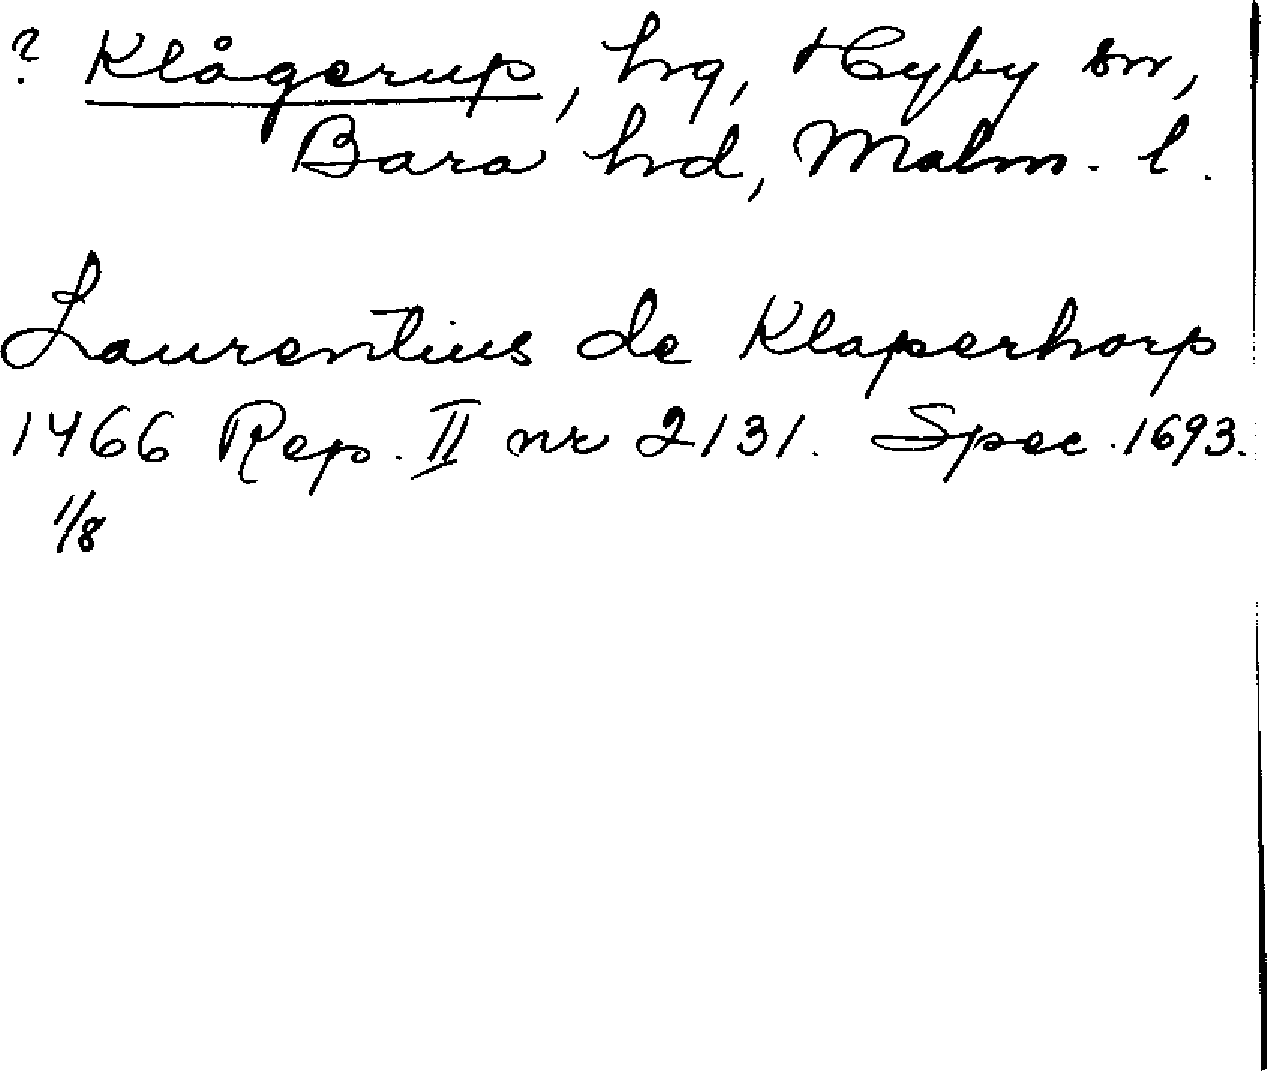 ? Klågerup, hg, Hyby sn,
Bara hd, Malm. l.
Laurentius de Klaperhorp
1466 Rep. II nr 2131. Spec. 1693.
1/8